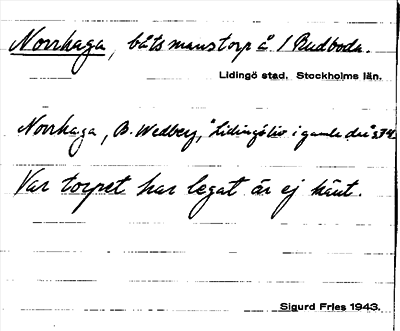 Norrhaga, båtsmanstorp å / Rudboda.
Lidingö stad. Stockholms län.
Norrhaga, B. Wedberg, "Lidingöliv i gamla da" s. 74
Var torpet har legat är ej känt.
Sigurd Fries 1943.